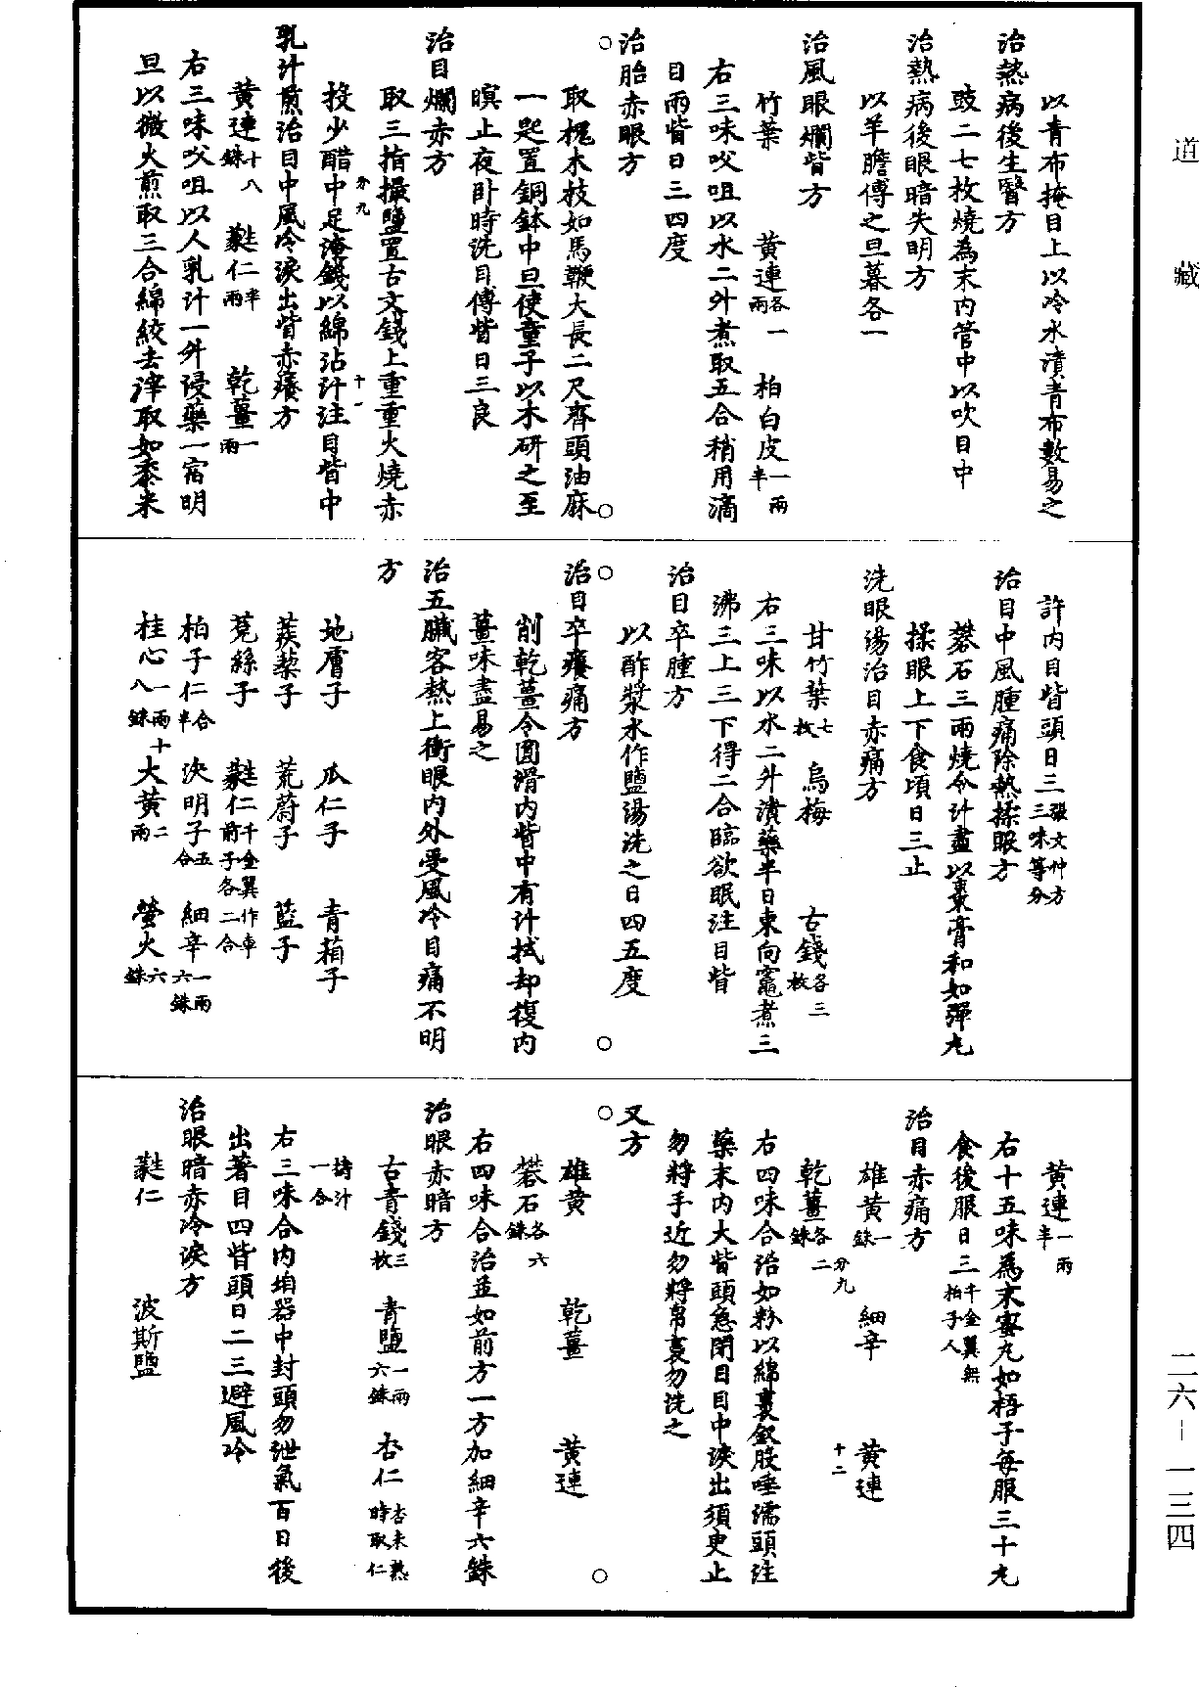 道藏
以青布掩目上以冷水漬青布數易之
治熱病後生瞖方
豉二七枚燒為末內管中以吹目中
治熱病後眼暗失明方
以羊膽傅之旦暮各一
治風眼爛眥方
竹葉 黃連各一兩 柏白皮一兩半
右三味㕮咀以水二升煮取五合稍用滴
目兩眥日三四度
治胎赤眼方
取槐木枝如馬鞭大長二尺齊頭油麻
一匙置銅鉢中旦使童子以木研之至
暝止夜卧時洗目傅眥日三良
治目爛赤方
取三指撮鹽置古文錢上重重火燒赤
投少醋中足淹錢以綿沾汁注目眥中
分九 十一
乳汁煎治目中風冷淚出眥赤癢方
黃連十八銖 蕤仁一兩半 乾薑一兩
右三味㕮咀以人乳汁一升浸藥一宿明
旦以微火煎取三合綿絞去滓取如黍米
許內目眥頭日三張文仲方三味等分
治目中風腫痛除熱揉眼方
礬石三兩燒令汁盡以棗膏和如彈丸
揉眼上下食頃日三止
洗眼湯治目赤痛方
甘竹葉七枚 烏梅 古錢各三枚
右三味以水二升漬藥半日東向竈煮三
沸三上三下得二合臨欲眠注目眥
治目卒腫方
以酢漿水作鹽湯洗之日四五度
治目卒癢痛方
削乾薑令圓滑內眥中有汁拭却復內
薑味盡易之
治五臟客熱上衝眼內外受風冷目痛不明
方
地膚子 瓜仁子 青葙子
蒺蔾子 茺蔚子 藍子
莵絲子 蕤仁千金翼作車前子各二合
柏子仁合半 決明子五合 細辛一兩六銖
桂心一兩十八銖 大黃二兩 螢火六銖
黃連一兩半
右十五味為末蜜丸如梧子每服三十丸
食後服日三千金翼無柏子人
治目赤痛方
雄黃一銖 細辛 黃連
分九 十二
乾薑各二銖
右四味合治如粉以綿裹釵股唾濡頭注
藥末內大眥頭急閉目目中淚出須臾止
勿將手近勿將帛裹勿洗之
又方
雄黃 乾薑 黃連
礬石各六銖
右四味合治並如前方一方加細辛六銖
治眼赤暗方
古青錢三枚 青鹽一兩六銖 杏仁杏未熟時取仁
擣汁一合
右三味合內垍器中封頭勿泄氣百日後
出著目四眥頭日二三避風冷
治眼暗赤冷淚方
蕤仁 波斯鹽
二六－一三四